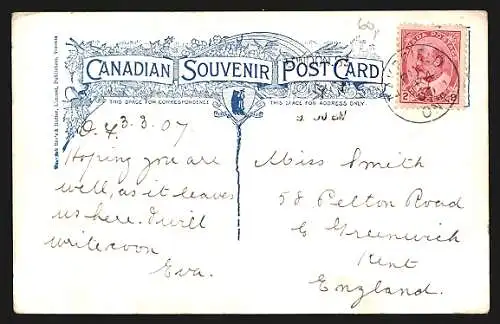 60
CANADIAN SOUVENIR POST CARD
THIS SPACE FOR CORRESPONDENCE
THIS SPACE FOR ADDRESS ONLY.
CANADA POSTAGE
2 CENTS 2
3.3.07.
Hoping you are
well, as it leaves
us here. I will
write soon
Eva.
Miss Smith
58 Pelton Road
E Greenwich
Kent
England.